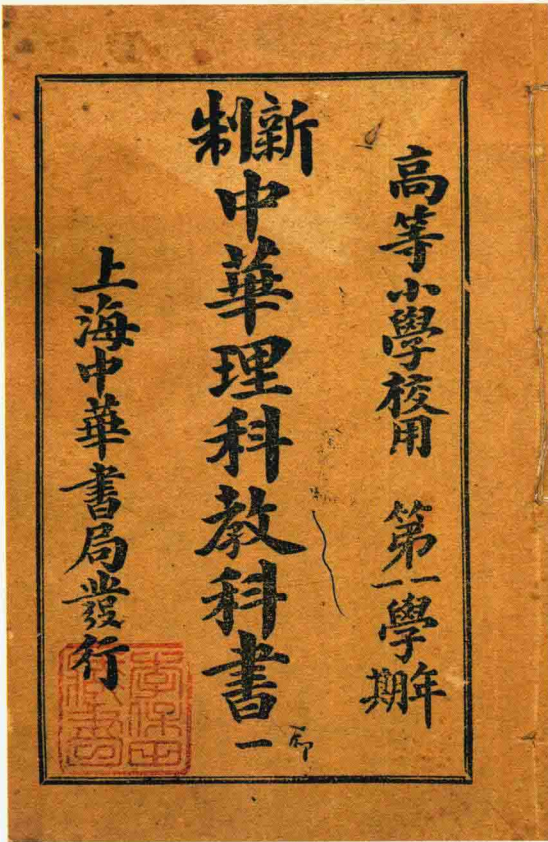 高等小學校用 第一學年第一學期
新制中華理科教科書一
上海中華書局發行